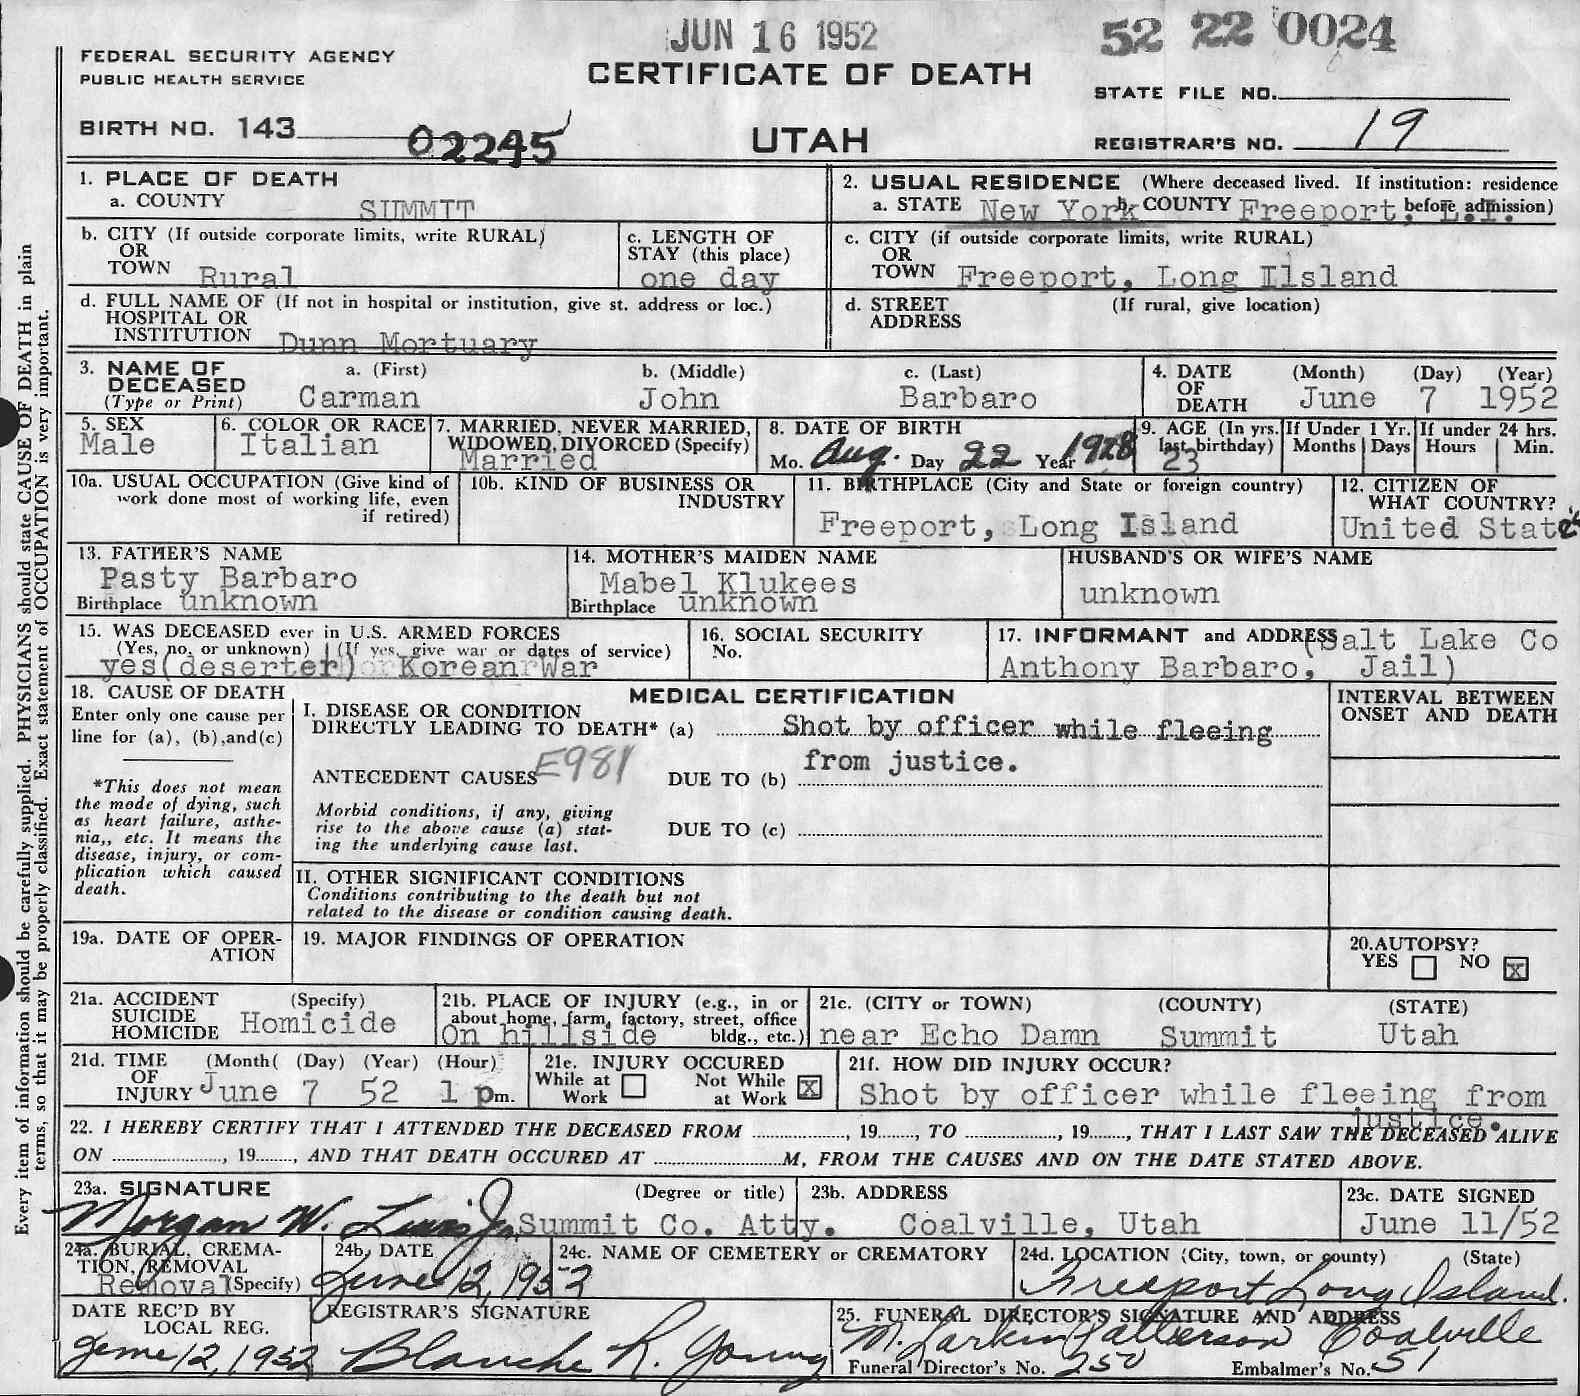 JUN 16 1952
52 22 0024
FEDERAL SECURITY AGENCY
PUBLIC HEALTH SERVICE
CERTIFICATE OF DEATH
STATE FILE NO.
BIRTH NO. 143 02245
UTAH
REGISTRAR'S NO. 19
1. PLACE OF DEATH
a. COUNTY SUMMIT
2. USUAL RESIDENCE (Where deceased lived. If institution: residence before admission)
a. STATE New York b. COUNTY Freeport, L.I.
b. CITY (If outside corporate limits, write RURAL)
OR
TOWN Rural
c. LENGTH OF
STAY (this place)
one day
c. CITY (if outside corporate limits, write RURAL)
OR
TOWN Freeport, Long Iisland
d. FULL NAME OF (If not in hospital or institution, give st. address or loc.)
HOSPITAL OR
INSTITUTION Dunn Mortuary
d. STREET (If rural, give location)
ADDRESS
3. NAME OF DECEASED
(Type or Print)
a. (First) b. (Middle) c. (Last)
Carman John Barbaro
4. DATE OF DEATH
(Month) (Day) (Year)
June 7 1952
5. SEX
Male
6. COLOR OR RACE
Italian
7. MARRIED, NEVER MARRIED,
WIDOWED, DIVORCED (Specify)
Married
8. DATE OF BIRTH
Mo. Aug. Day 22 Year 1928
9. AGE (In yrs. last birthday)
23
If Under 1 Yr.
Months Days
If under 24 hrs.
Hours Min.
10a. USUAL OCCUPATION (Give kind of
work done most of working life, even
if retired)
10b. KIND OF BUSINESS OR
INDUSTRY
11. BIRTHPLACE (City and State or foreign country)
Freeport, Long Island
12. CITIZEN OF
WHAT COUNTRY?
United States
13. FATHER'S NAME
Pasty Barbaro
Birthplace unknown
14. MOTHER'S MAIDEN NAME
Mabel Klukees
Birthplace unknown
HUSBAND'S OR WIFE'S NAME
unknown
15. WAS DECEASED ever in U.S. ARMED FORCES
(Yes, no, or unknown) (If yes, give war or dates of service)
yes(deserter) Korean War
16. SOCIAL SECURITY
No.
17. INFORMANT and ADDRESS (Salt Lake Co
Anthony Barbaro, Jail)
18. CAUSE OF DEATH
Enter only one cause per
line for (a), (b),and(c)
*This does not mean
the mode of dying, such
as heart failure, asthe-
nia,, etc. It means the
disease, injury, or com-
plication which caused
death.
MEDICAL CERTIFICATION
I. DISEASE OR CONDITION
DIRECTLY LEADING TO DEATH* (a) Shot by officer while fleeing
from justice.
ANTECEDENT CAUSES E981 DUE TO (b)
Morbid conditions, if any, giving
rise to the above cause (a) stat-
ing the underlying cause last.
DUE TO (c)
INTERVAL BETWEEN
ONSET AND DEATH
II. OTHER SIGNIFICANT CONDITIONS
Conditions contributing to the death but not
related to the disease or condition causing death.
19a. DATE OF OPER-
ATION
19. MAJOR FINDINGS OF OPERATION
20.AUTOPSY?
YES NO X
21a. ACCIDENT (Specify)
SUICIDE
HOMICIDE Homicide
21b. PLACE OF INJURY (e.g., in or
about home, farm, factory, street, office
bldg., etc.)
On hillside
21c. (CITY or TOWN) (COUNTY) (STATE)
near Echo Damn Summit Utah
21d. TIME OF INJURY
(Month( (Day) (Year) (Hour)
June 7 52 1 pm.
21e. INJURY OCCURED
While at Work Not While at Work X
21f. HOW DID INJURY OCCUR?
Shot by officer while fleeing from
justice.
22. I HEREBY CERTIFY THAT I ATTENDED THE DECEASED FROM , 19 , TO , 19 , THAT I LAST SAW THE DECEASED ALIVE
ON , 19 , AND THAT DEATH OCCURED AT M, FROM THE CAUSES AND ON THE DATE STATED ABOVE.
23a. SIGNATURE (Degree or title)
Morgan W. Lewis Jr. Summit Co. Atty.
23b. ADDRESS
Coalville, Utah
23c. DATE SIGNED
June 11/52
24a. BURIAL, CREMA-
TION, REMOVAL
Removal (Specify)
24b. DATE
June 12, 1952
24c. NAME OF CEMETERY or CREMATORY
24d. LOCATION (City, town, or county) (State)
Freeport Long Island.
DATE REC'D BY
LOCAL REG.
June 12, 1952
REGISTRAR'S SIGNATURE
Blanche R. Young
25. FUNERAL DIRECTOR'S SIGNATURE AND ADDRESS
M. Larkin Patterson Coalville
Funeral Director's No. 250 Embalmer's No. 51
Every item of information should be carefully supplied. PHYSICIANS should state CAUSE OF DEATH in plain
terms, so that it may be properly classified. Exact statement of OCCUPATION is very important.